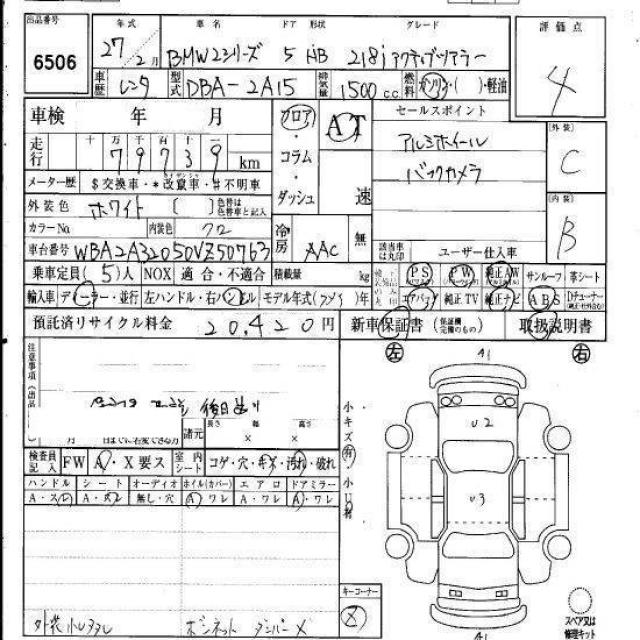 出品番号 年式 車名 ドア 形状 グレード 評価点
6506 27年 2月 BMW2シリーズ 5 HB 218i アクティブツアラー 4
車歴 レンタ 型式 DBA-2A15 排気量 1500cc 燃料 ガソリン・( )・軽油
車検 年 月 フロア AT セールスポイント
走行 十万千百十 79739 km ・コラム アルミホイール 外装 C
メーター歴 $交換車・*改竄車・#不明車 ・ダッシュ 速 バックカメラ
外装色 ホワイト [ ] 色替は 色替車と記入 内装 B
カラーNo 内装色 クロ 冷房 AAC 無 該当車は丸印 ユーザー仕入車
車台番号 WBA2A32050VZ50763
乗車定員(5)人 NOX 適合・不適合 積載量 kg PS PW 純正AW サンルーフ 革シート
輸入車 ディーラー・並行 左ハンドル・右ハンドル モデル年式( )年 エアバッグ 純正TV 純正ナビ ABS Dチューナー
預託済リサイクル料金 20,420円 新車保証書 (保証欄完備のもの) 取扱説明書
左 41 右
注意事項(出品 後日送り
月 日までに名変できる方 諸元 長さ 幅 高さ × ×
小キズ有・小U有
U2
検査員記入 FW A・X要ス 室内シート コゲ・穴・キズ・汚れ・破れ
ハンドル シート オーディオ ホイル(カバー) エアロ ドアミラー
A・スレ A・スレ 無し・穴 A・ワレ A・ワレ A・ワレ
U3
キーコーナー
外装小キズ ボンネット ダンパー× 41 スペア又は修理キット